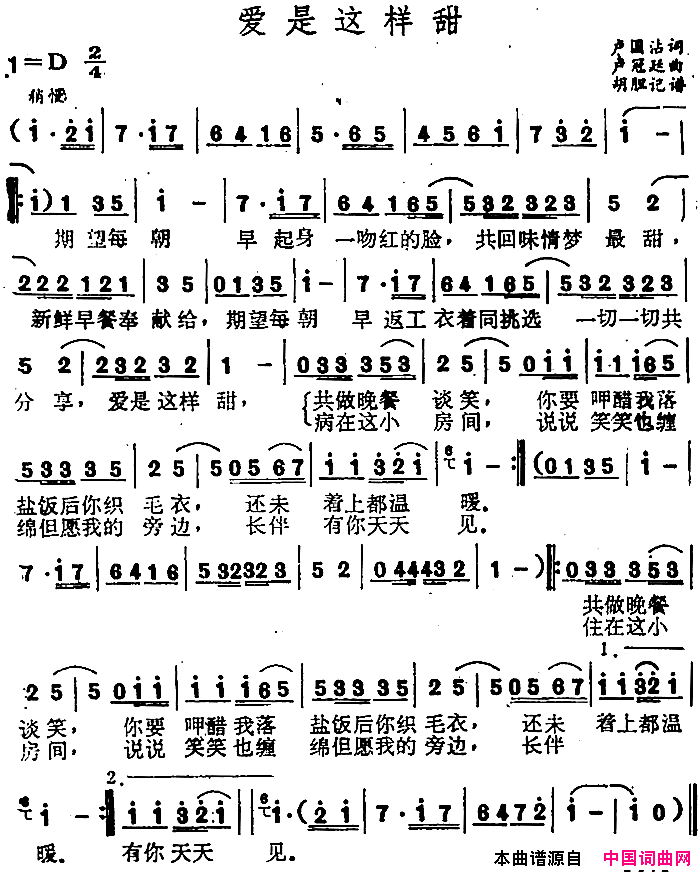 爱是这样甜
1=D 2/4
卢国沾词
卢冠廷曲
胡胆记谱
稍慢
(i·2i|7·i7|6416|5·65|4561|732|i-|
i)135|i-|7·i7|64165|532323|52|
期望每朝 早起身 一吻红的脸，共回味情梦 最甜，
222121|35|0135|i-|7·i7|64165|532323|
新鲜早餐奉献给，期望每朝 早返工衣着同挑选 一切一切共
52|23232|1-|033353|25|50ii|iii65|
分享，爱是这样甜，共做晚餐 谈笑，你要呷醋我落
病在这小 房间，说说笑笑也缠
53335|25|50567|ii32i|6i-:|(0135|i-|
盐饭后你织毛衣，还未 着上都温 暖。
绵但愿我的旁边，长伴 有你天天 见。
7·i7|6416|532323|52|044432|1-):|033353|
共做晚餐
住在这小
1.
25|50ii|iii65|53335|25|50567|ii32i|
谈笑，你要呷醋我落 盐饭后你织毛衣，还未 着上都温
房间，说说笑笑也缠 绵但愿我的旁边，长伴
2.
6i-:|ii32i|6i·(2i|7·i7|6472|i-|i0)|
暖。 有你天天 见。
本曲谱源自 中国词曲网